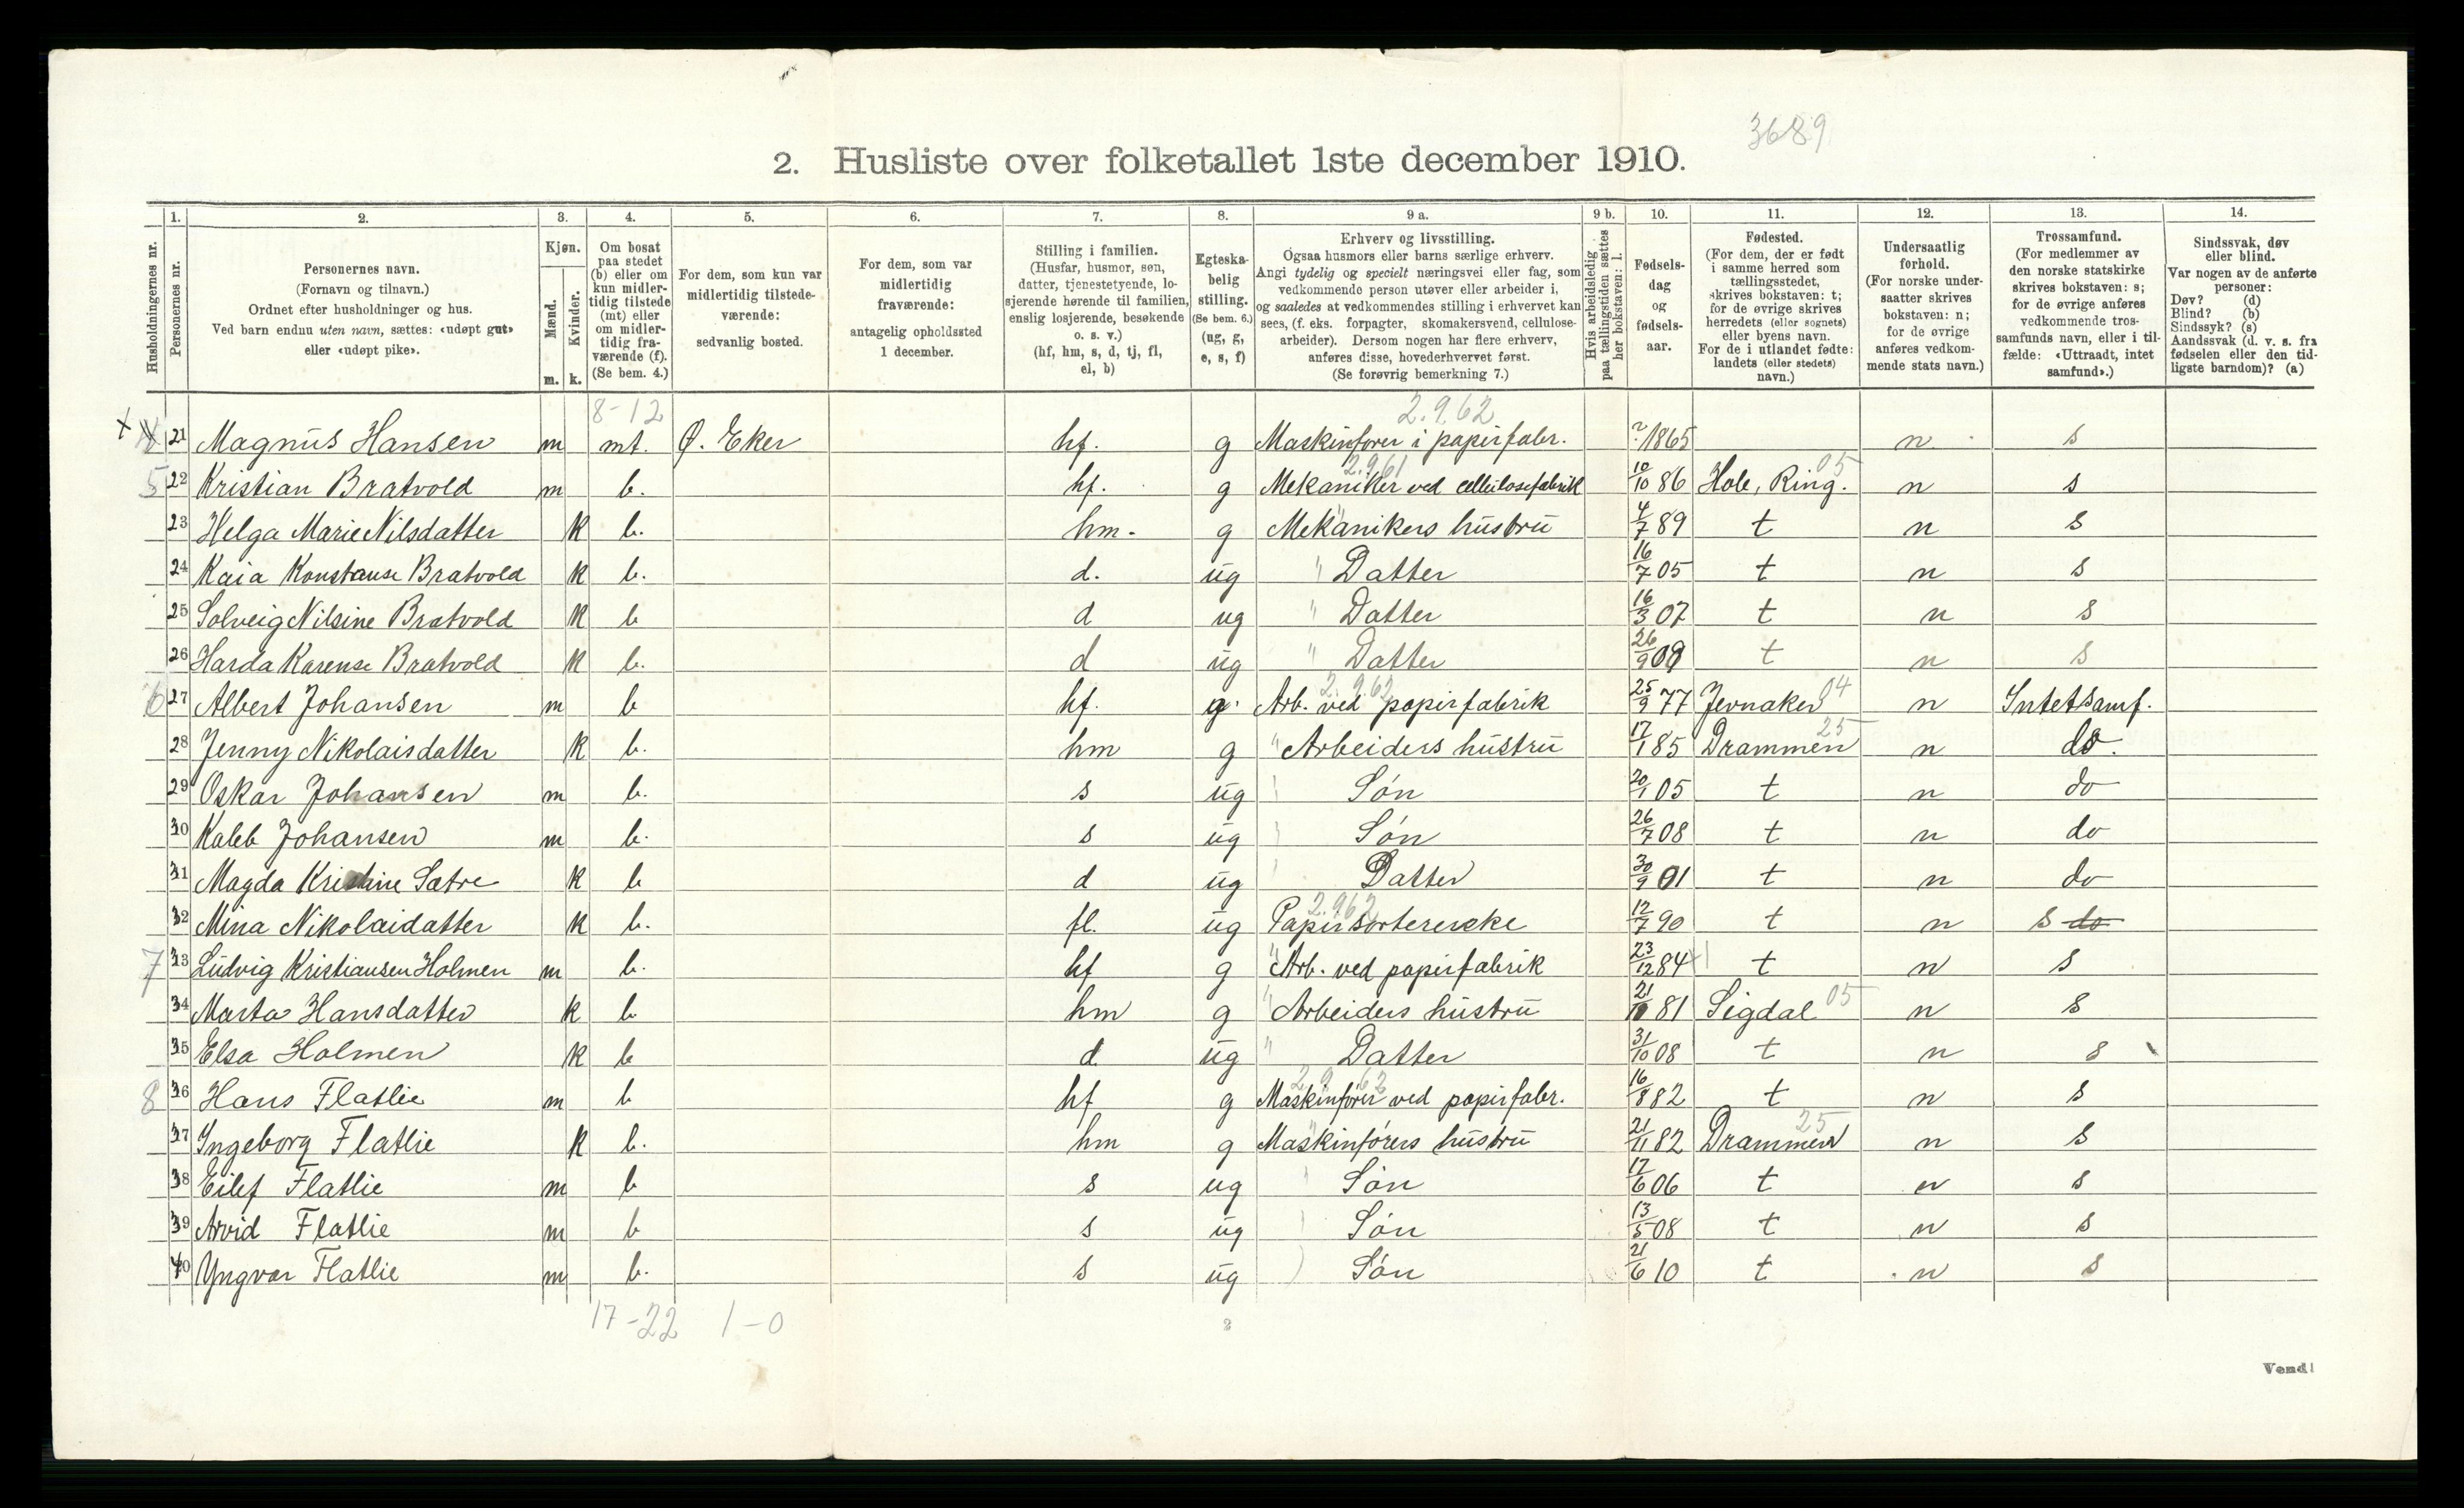 3689
2. Husliste over folketallet 1ste december 1910.
Husholdningernes nr.
1.
Personernes nr.
2.
Personernes navn.
(Fornavn og tilnavn.)
Ordnet efter husholdninger og hus.
Ved barn endnu uten navn, sættes: «udøpt gut»
eller «udøpt pike».
3.
Kjøn.
Mænd.
Kvinder.
m. k.
4.
Om bosat
paa stedet
(b) eller om
kun midler-
tidig tilstede
(mt) eller
om midler-
tidig fra-
værende (f).
(Se bem. 4.)
5.
For dem, som kun var
midlertidig tilstede-
værende:
sedvanlig bosted.
6.
For dem, som var
midlertidig
fraværende:
antagelig opholdssted
1 december.
7.
Stilling i familien.
(Husfar, husmor, søn,
datter, tjenestetyende, lo-
sjerende hørende til familien,
enslig losjerende, besøkende
o. s. v.)
(hf, hm, s, d, tj, fl,
el, b)
8.
Egteska-
belig
stilling.
(Se bem. 6.)
(ug, g,
e, s, f)
9 a.
Erhverv og livsstilling.
Ogsaa husmors eller barns særlige erhverv.
Angi tydelig og specielt næringsvei eller fag, som
vedkommende person utøver eller arbeider i,
og saaledes at vedkommendes stilling i erhvervet kan
sees, (f. eks. forpagter, skomakersvend, cellulose-
arbeider). Dersom nogen har flere erhverv,
anføres disse, hovederhvervet først.
(Se forøvrig bemerkning 7.)
9 b.
Hvis arbeidsledig
paa tællingstiden sættes
her bokstaven: l.
10.
Fødsels-
dag
og
fødsels-
aar.
11.
Fødested.
(For dem, der er født
i samme herred som
tællingsstedet,
skrives bokstaven: t;
for de øvrige skrives
herredets (eller sognets)
eller byens navn.
For de i utlandet fødte:
landets (eller stedets)
navn.)
12.
Undersaatlig
forhold.
(For norske under-
saatter skrives
bokstaven: n;
for de øvrige
anføres vedkom-
mende stats navn.)
13.
Trossamfund.
(For medlemmer av
den norske statskirke
skrives bokstaven: s;
for de øvrige anføres
vedkommende tros-
samfunds navn, eller i til-
fælde: «Uttraadt, intet
samfund».)
14.
Sindssvak, døv
eller blind.
Var nogen av de anførte
personer:
Døv? (d)
Blind? (b)
Sindssyk? (s)
Aandssvak (d. v. s. fra
fødselen eller den tid-
ligste barndom)? (a)
8-12 2.9.62
x 21 Magnus Hansen m mt. Ø. Eker hf. g Maskinfører i papirfabr. ? 1865 n s
2.961 05
5 22 Kristian Bratvold m b. hf. g Mekaniker ved cellulosefabrik 10/10 86 Hole, Ring. n s
23 Helga Marie Nilsdatter k b. hm. g Mekanikers hustru 4/7 89 t n s
24 Kaia Konstanse Bratvold k b. d. ug " Datter 16/7 05 t n s
25 Solveig Nilsine Bratvold k b d ug " Datter 16/3 07 t n s
26 Harda Karense Bratvold k b. d ug " Datter 26/9 09 t n s
2.962 04
6 27 Albert Johansen m b hf. g. Arb. ved papirfabrik 25/9 77 Jevnaker n Intet samf.
25
28 Jenny Nikolaisdatter k b. hm g " Arbeiders hustru 17/1 85 Drammen n do.
29 Oskar Johansen m b. s ug Søn 20/1 05 t n do
30 Kaleb Johansen m b. s ug Søn 26/7 08 t n do
31 Magda Kristine Sætre k b d ug Datter 30/9 01 t n do
2.962
32 Mina Nikolaidatter k b. fl. ug Papirsortererske 12/7 90 t n s do
7 33 Ludvig Kristiansen Holmen m b. hf g " Arb. ved papirfabrik 23/12 84 t n s
34 Marta Hansdatter k b hm g " Arbeiders hustru 21/10 81 Sigdal 05 n s
35 Elsa Holmen k b d. ug " Datter 31/10 08 t n s
2.9.62
8 36 Hans Flatlie m b hf g Maskinfører ved papirfabr. 16/8 82 t n s
25
37 Ingeborg Flatlie k b. hm g Maskinførers hustru 21/11 82 Drammen n s
38 Eilef Flatlie m b s ug " Søn 17/6 06 t n s
39 Arvid Flatlie m b s ug Søn 13/5 08 t n s
40 Yngvar Flatlie m b. s ug Søn 21/6 10 t n s
17-22 1-0
2
Vend!